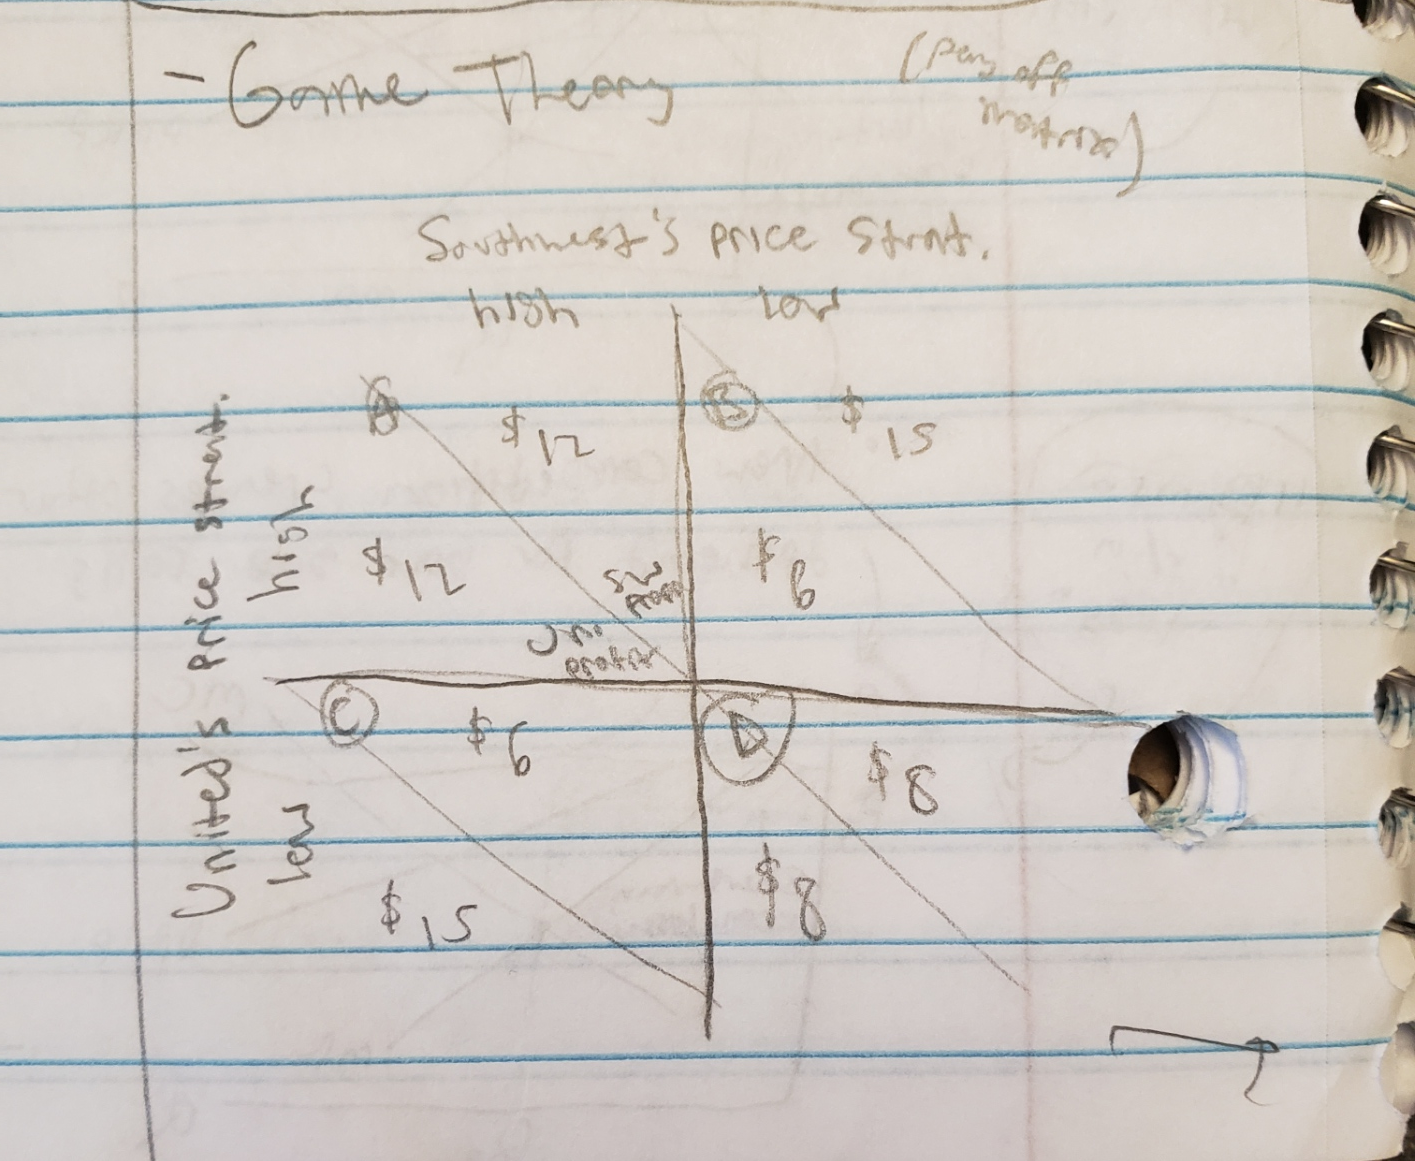 - Game Theory
(pay off
matrix)
Southwest's price strat.
high low
United's price strat.
high
low
A $12
B $15
$12
$6
SW
Uni
profit
C $6
D $8
$15
$8